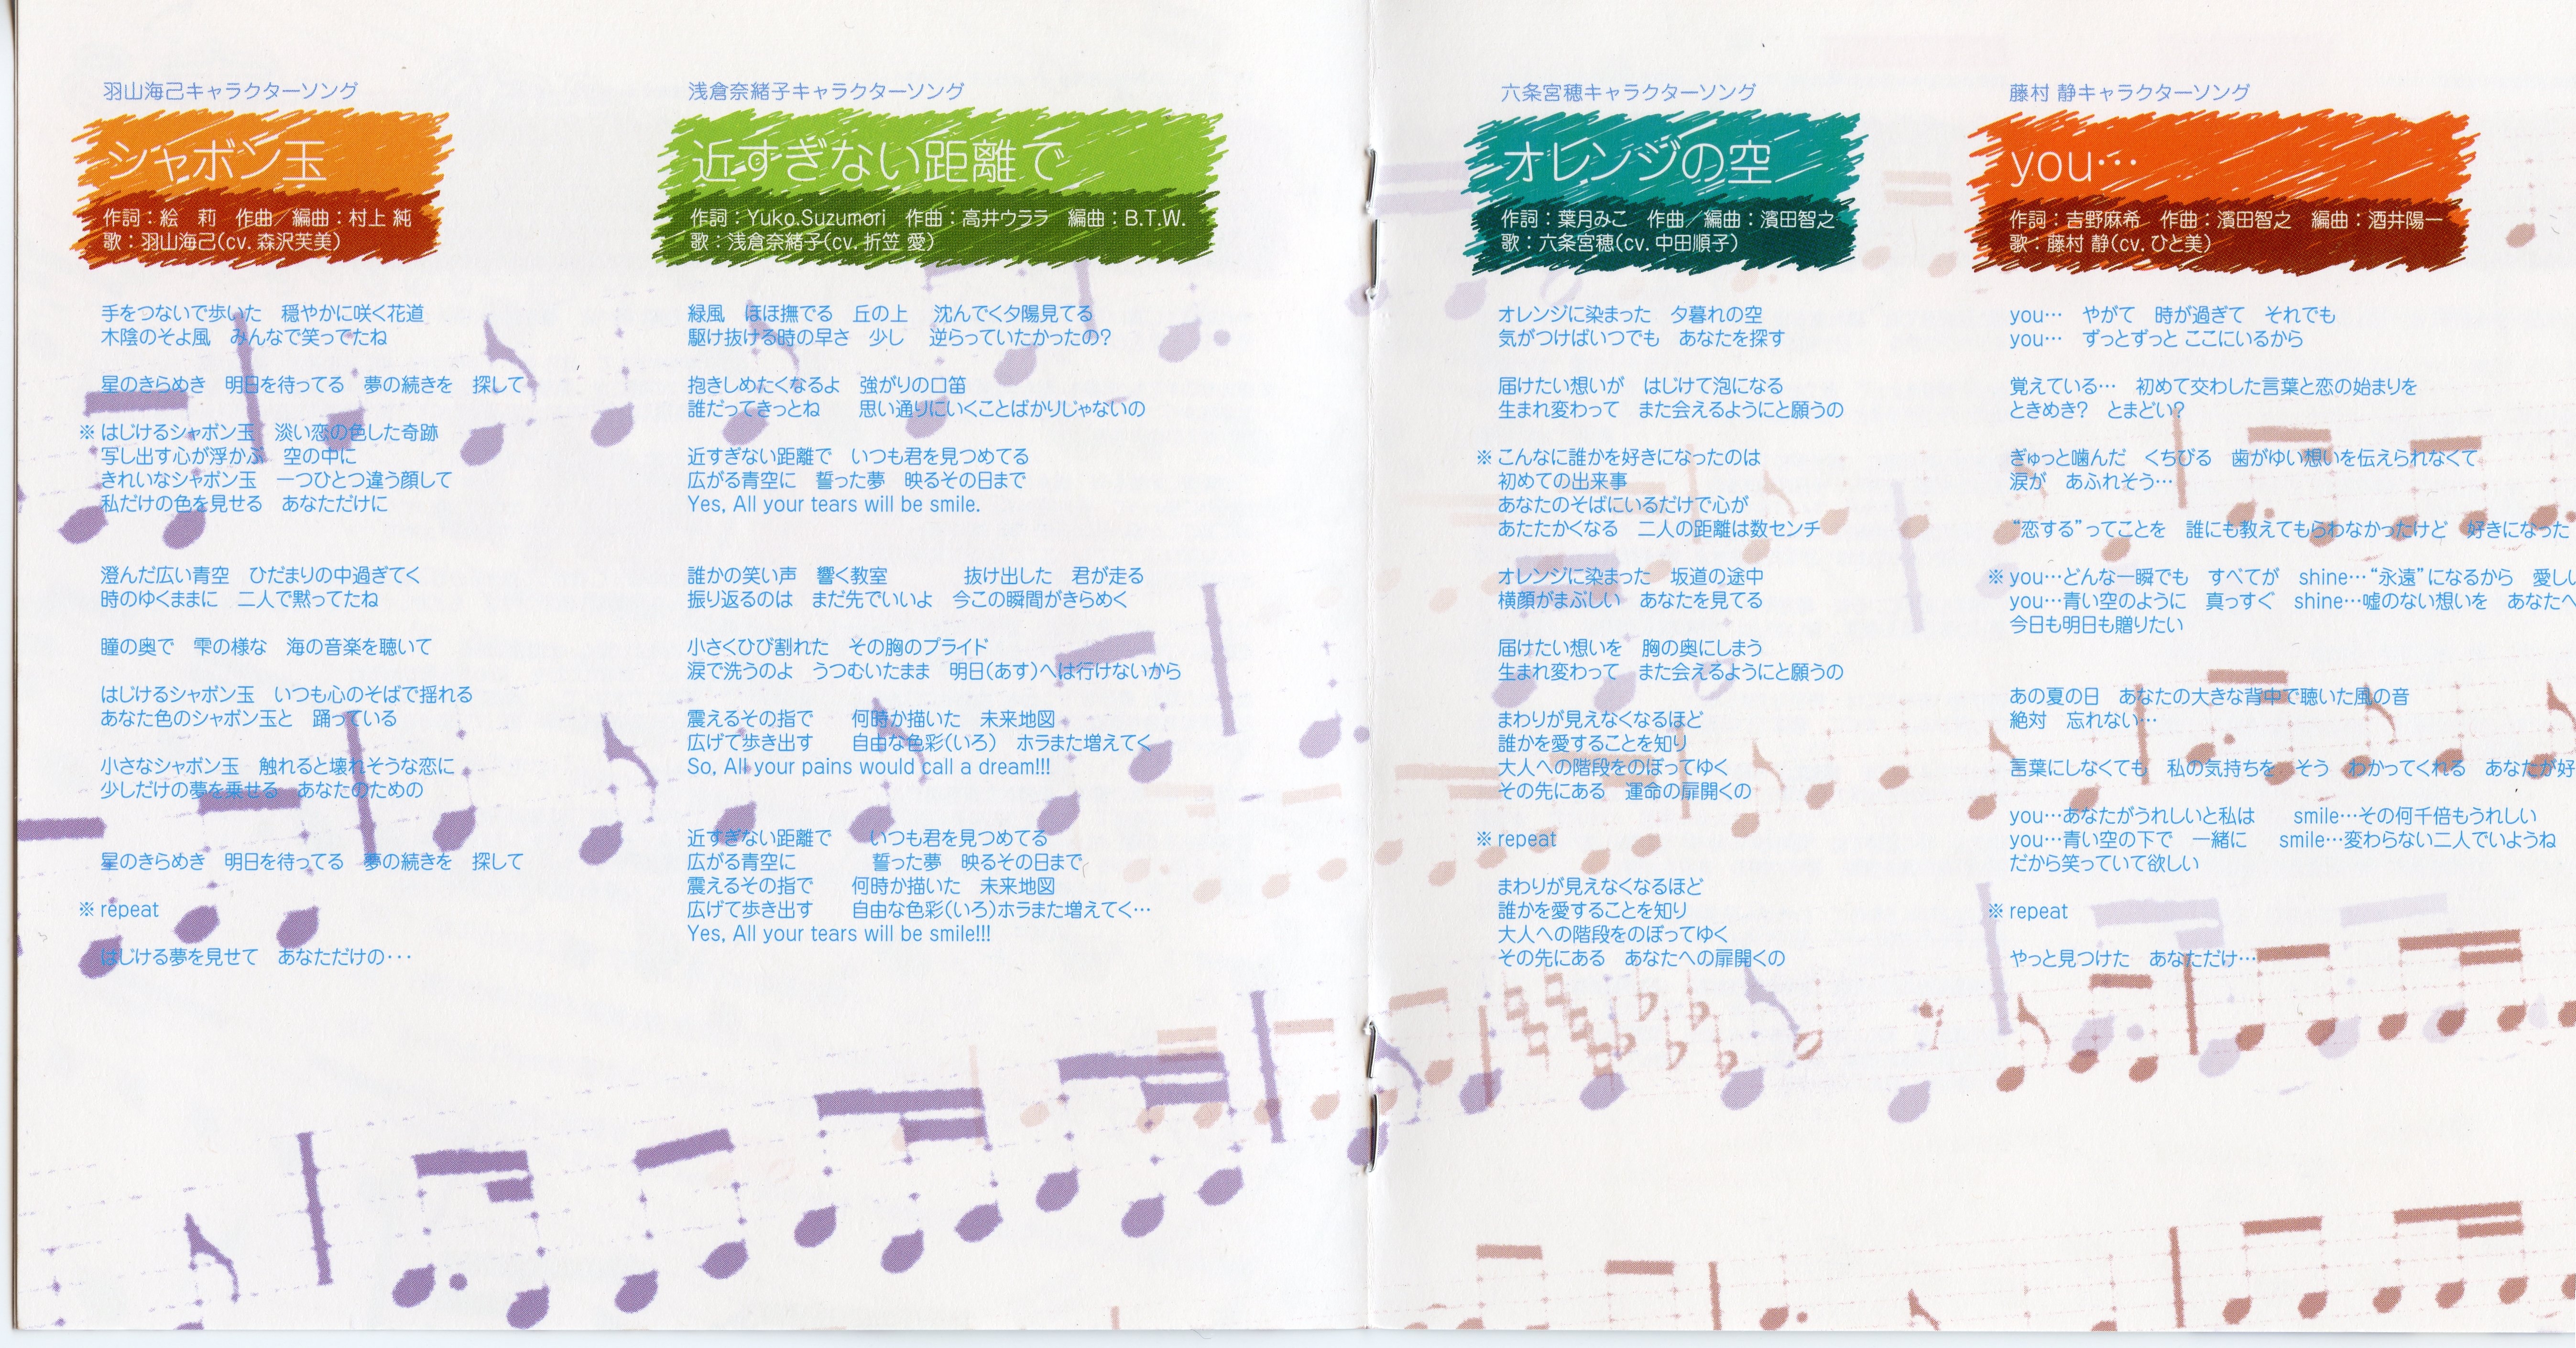 羽山海己キャラクターソング
シャボン玉
作詞：絵　莉　作曲／編曲：村上 純
歌：羽山海己(cv. 森沢芙美)
手をつないで歩いた　穏やかに咲く花道
木陰のそよ風　みんなで笑ってたね
星のきらめき　明日を待ってる　夢の続きを　探して
※ はじけるシャボン玉　淡い恋の色した奇跡
写し出す心が浮かぶ　空の中に
きれいなシャボン玉　一つひとつ違う顔して
私だけの色を見せる　あなただけに
澄んだ広い青空　ひだまりの中過ぎてく
時のゆくままに　二人で黙ってたね
瞳の奥で　雫の様な　海の音楽を聴いて
はじけるシャボン玉　いつも心のそばで揺れる
あなた色のシャボン玉と　踊っている
小さなシャボン玉　触れると壊れそうな恋に
少しだけの夢を乗せる　あなたのための
星のきらめき　明日を待ってる　夢の続きを　探して
※ repeat
はじける夢を見せて　あなただけの･･･
浅倉奈緒子キャラクターソング
近すぎない距離で
作詞：Yuko.Suzumori　作曲：高井ウララ　編曲：B.T.W.
歌：浅倉奈緒子(cv. 折笠 愛)
緑風　ほほ撫でる　丘の上　沈んでく夕陽見てる
駆け抜ける時の早さ　少し　逆らっていたかったの?
抱きしめたくなるよ　強がりの口笛
誰だってきっとね　　思い通りにいくことばかりじゃないの
近すぎない距離で　いつも君を見つめてる
広がる青空に　誓った夢　映るその日まで
Yes, All your tears will be smile.
誰かの笑い声　響く教室　　　　抜け出した　君が走る
振り返るのは　まだ先でいいよ　今この瞬間がきらめく
小さくひび割れた　その胸のプライド
涙で洗うのよ　うつむいたまま　明日(あす)へは行けないから
震えるその指で　　何時か描いた　未来地図
広げて歩き出す　　自由な色彩(いろ)　ホラまた増えてく
So, All your pains would call a dream!!!
近すぎない距離で　　いつも君を見つめてる
広がる青空に　　　　誓った夢　映るその日まで
震えるその指で　　何時か描いた　未来地図
広げて歩き出す　　自由な色彩(いろ)ホラまた増えてく…
Yes, All your tears will be smile!!!
六条宮穂キャラクターソング
オレンジの空
作詞：葉月みこ　作曲／編曲：濱田智之
歌：六条宮穂(cv. 中田順子)
オレンジに染まった　夕暮れの空
気がつけばいつでも　あなたを探す
届けたい想いが　はじけて泡になる
生まれ変わって　また会えるようにと願うの
※ こんなに誰かを好きになったのは
初めての出来事
あなたのそばにいるだけで心が
あたたかくなる　二人の距離は数センチ
オレンジに染まった　坂道の途中
横顔がまぶしい　あなたを見てる
届けたい想いを　胸の奥にしまう
生まれ変わって　また会えるようにと願うの
まわりが見えなくなるほど
誰かを愛することを知り
大人への階段をのぼってゆく
その先にある　運命の扉開くの
※ repeat
まわりが見えなくなるほど
誰かを愛することを知り
大人への階段をのぼってゆく
その先にある　あなたへの扉開くの
藤村 静キャラクターソング
you…
作詞：吉野麻希　作曲：濱田智之　編曲：酒井陽一
歌：藤村 静(cv. ひと美)
you…　やがて　時が過ぎて　それでも
you…　ずっとずっと ここにいるから
覚えている…　初めて交わした言葉と恋の始まりを
ときめき?　とまどい?
ぎゅっと噛んだ　くちびる　歯がゆい想いを伝えられなくて
涙が　あふれそう…
“恋する”ってことを　誰にも教えてもらわなかったけど　好きになった
※ you…どんな一瞬でも　すべてが　shine…“永遠”になるから　愛し
you…青い空のように　真っすぐ　shine…嘘のない想いを　あなたへ
今日も明日も贈りたい
あの夏の日　あなたの大きな背中で聴いた風の音
絶対　忘れない…
言葉にしなくても　私の気持ちを　そう　わかってくれる　あなたが好
you…あなたがうれしいと私は　　smile…その何千倍もうれしい
you…青い空の下で　一緒に　　smile…変わらない二人でいようね
だから笑っていて欲しい
※ repeat
やっと見つけた　あなただけ…